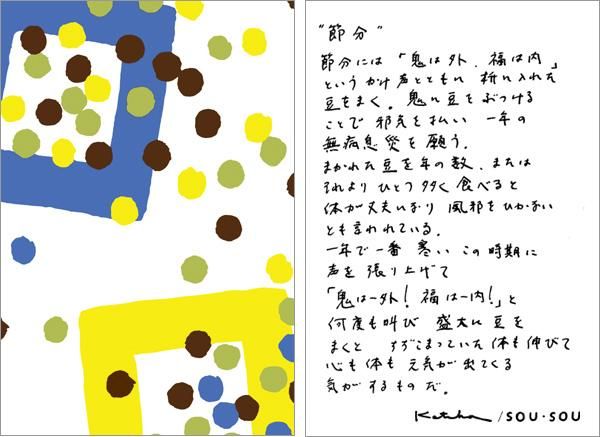 "節分"
節分には「鬼は外、福は内」
というかけ声とともに 桝に入れた
豆をまく。鬼に豆をぶつける
ことで 邪気を払い 一年の
無病息災を願う。
まかれた豆を年の数、または
それより ひとつ多く食べると
体が丈夫になり 風邪をひかない
とも言われている。
一年で一番 寒い この時期に
声を張り上げて
「鬼はー外！福はー内！」と
何度も叫び 盛大に豆を
まくと ちぢこまっていた体も伸びて
心も体も 元気が出てくる
気がするものだ。
Katsha / SOU・SOU